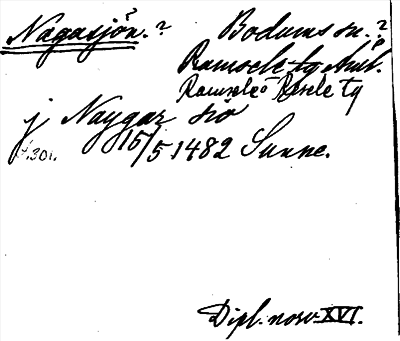 Nagasjön.? Bodums sn.?
Ramsele tg Ånl.
Ramsele o Resele tg
j Naygar siö
s. 301. 15/5 1482 Sunne.
Dipl. norv. XVI.